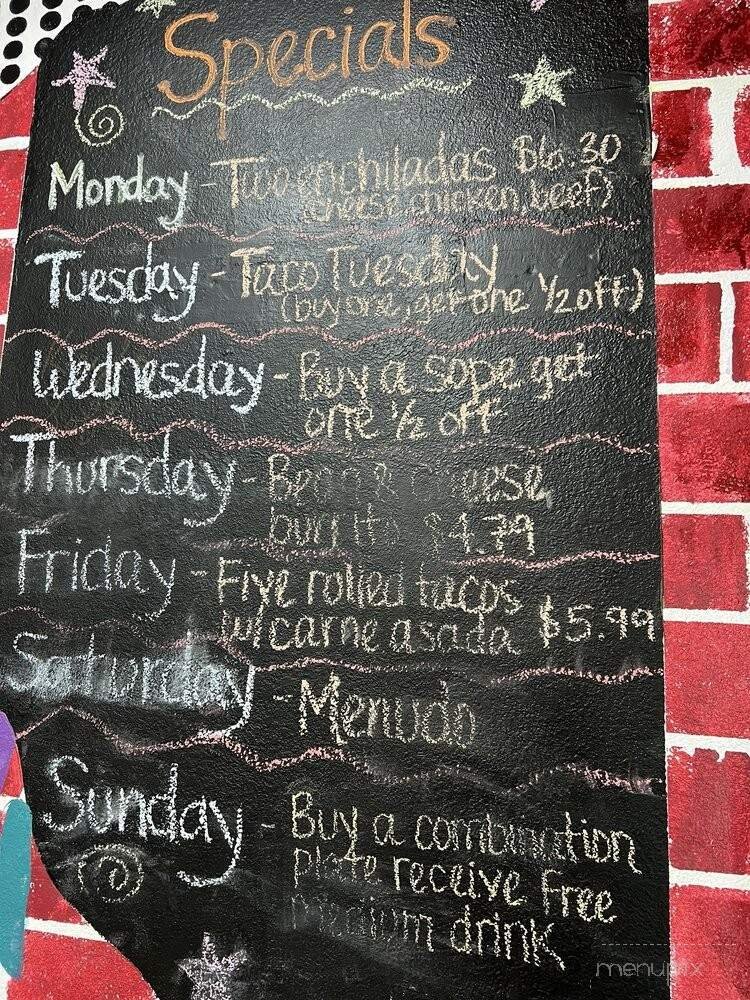 Specials
Monday - Two enchiladas $6.30
(cheese, chicken, beef)
Tuesday - Taco Tuesday
(buy one, get one 1/2 off)
Wednesday - Buy a sope get
one 1/2 off
Thursday - Bean & Cheese
burrito $4.79
Friday - Five rolled tacos
w/ carne asada $5.99
Saturday - Menudo
Sunday - Buy a combination
plate receive free
medium drink
menupix